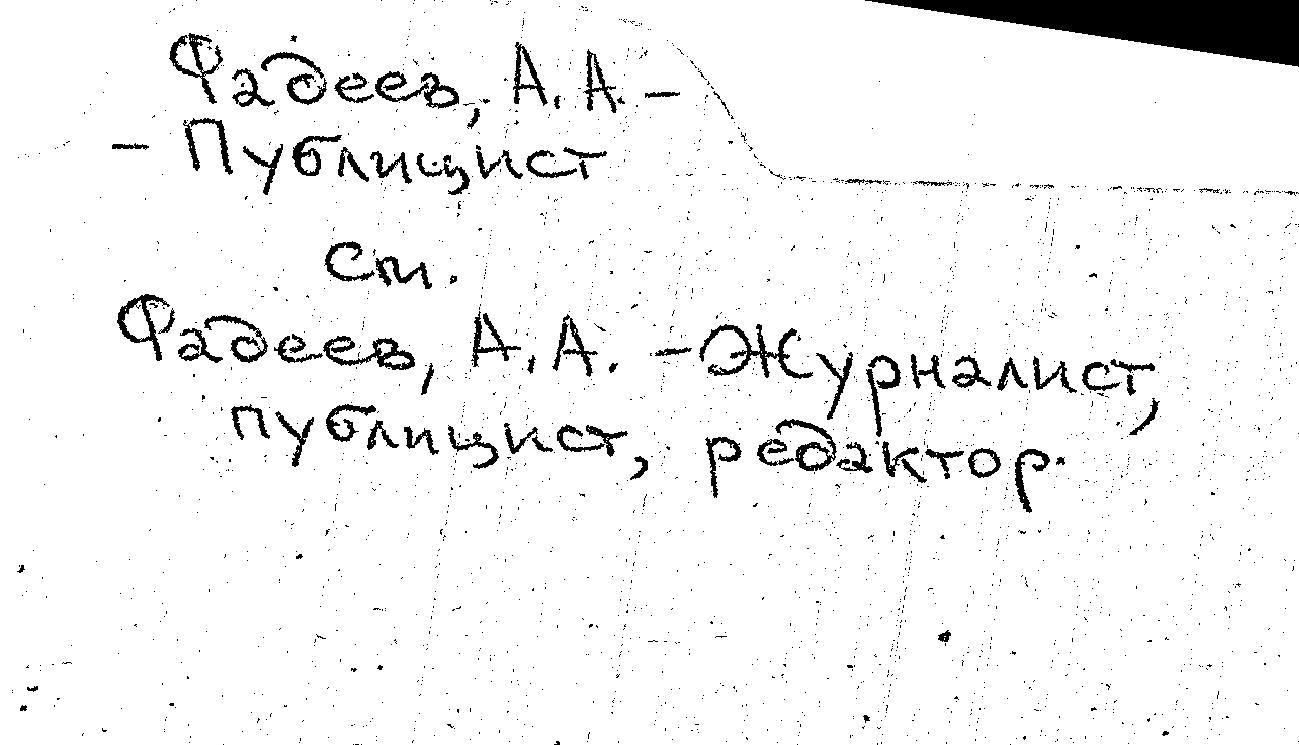 Фадеев, А. А. –
– Публицист
см.
Фадеев, А. А. – Журналист,
публицист, редактор.